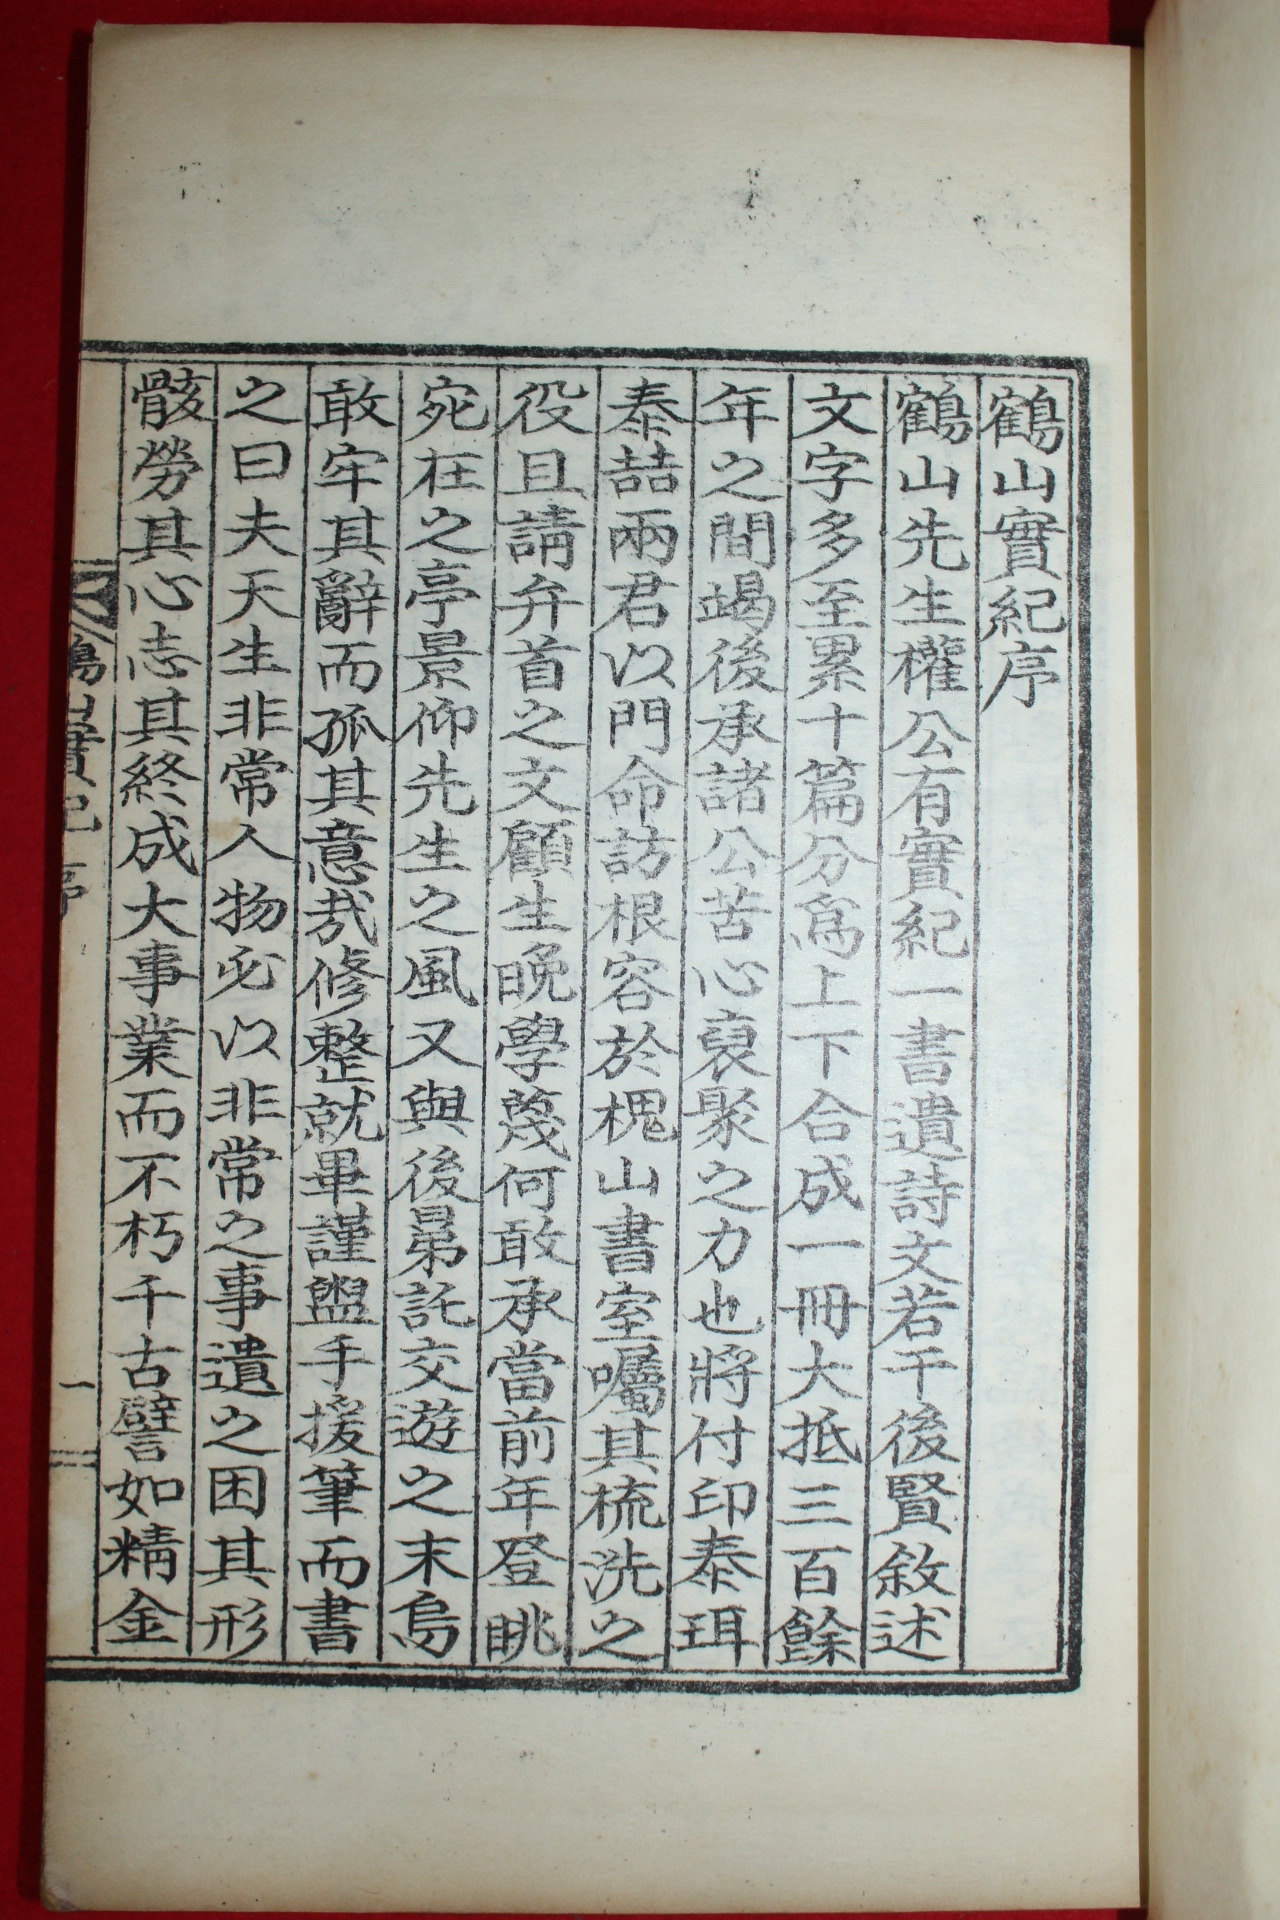 鶴山實紀序
鶴山先生權公有實紀一書遺詩文若干後賢敘述
文字多至累十篇分爲上下合成一冊大抵三百餘
年之間竭後承諸公苦心裒聚之力也將付印泰珥
泰喆兩君以門命訪根容於槐山書室囑其梳洗之
役且請弁首之文顧生晩學蔑何敢承當前年登眺
宛在之亭景仰先生之風又與後昴託交遊之末烏
敢牢其辭而孤其意哉修整就畢謹盥手援筆而書
之曰夫天生非常人物必以非常之事遺之困其形
骸勞其心志其終成大事業而不朽千古譬如精金
鶴山實紀 序 一